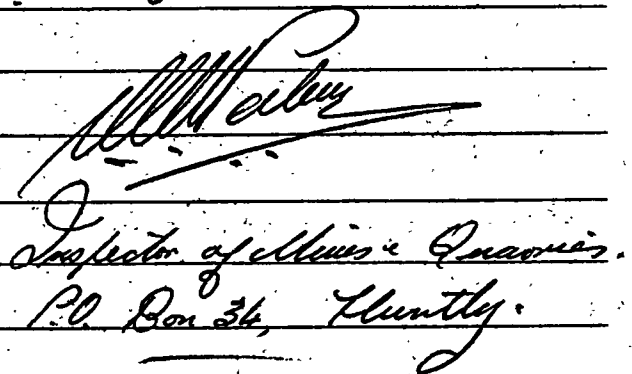 Inspector of Mines & Quarries.
P.O. Box 34, Huntly.